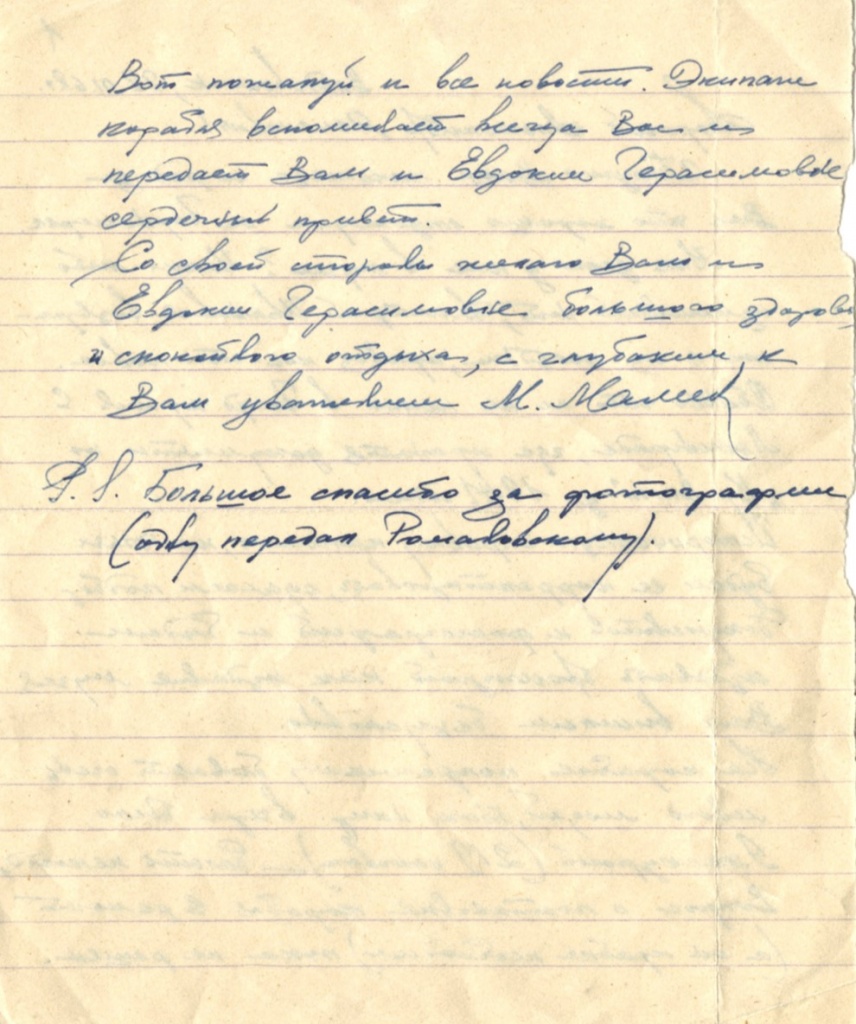 Вот пожалуй и все новости. Экипаж
корабля вспоминает всегда Вас и
передает Вам и Евдокии Герасимовне
сердечный привет.
Со своей стороны желаю Вам и
Евдокии Герасимовне большого здоровья
и спокойного отдыха, с глубоким к
Вам уважением М.
P.S. Большое спасибо за фотографии
(одну передал Романовскому).